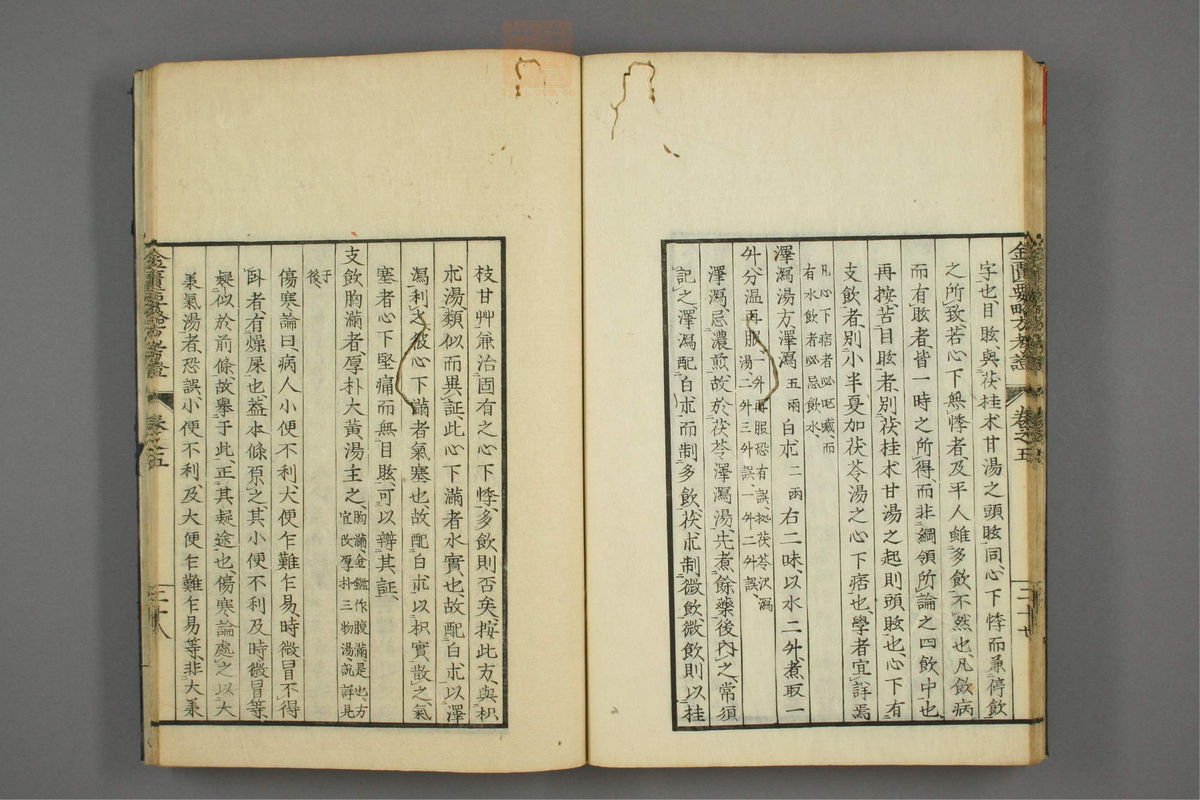 金匱要略方考證 卷之五 三十七
字也、目眩、與茯桂朮甘湯之頭眩同、心下悸而兼停飲
之所致、若心下無悸者、及平人雖多飲不然也、凡飲病
而有眩者、皆一時之所得、而非綱領所論之四飲中也
再按、苦目眩者、別茯桂朮甘湯之起則頭眩也、心下有
支飲者、別小半夏加茯苓湯之心下痞也、學者宜詳焉
凡心下痞者必
有水飲者必忌飲水、
澤瀉湯方、澤瀉五兩白朮二兩右二味、以水二升、煮取一
升、分温再服、一升再服恐有誤、茯苓沢瀉
湯二升三升誤、一升二升誤、
澤瀉、忌濃煎、故於茯苓澤瀉湯、先煮餘藥、後內之、常須
記之、澤瀉配白朮而制多飲、茯朮制微飲、微飲則以桂
枝甘艸兼治固有之心下悸、多飲則否矣、按此方、與枳
朮湯、類似而異証、此心下滿者水實也、故配白朮以澤
瀉利之、彼心下滿者氣塞也、故配白朮以枳實散之、氣
塞者心下堅痛而無目眩、可以辨其証、
支飲胸滿者、厚朴大黃湯主之、胸滿、金鑑作腹滿是也、方
宜改厚朴三物湯說詳見
于
後、
傷寒論曰、病人小便不利、大便乍難乍易、時微冒不得
臥者、有燥屎也、蓋本條原之、其小便不利及時微冒等、
疑似於前條、故舉于此、正其疑途也、傷寒論處之以大
承氣湯者、恐誤、小便不利、及大便乍難乍易等、非大承
金匱要略方考證 卷之五 三十八